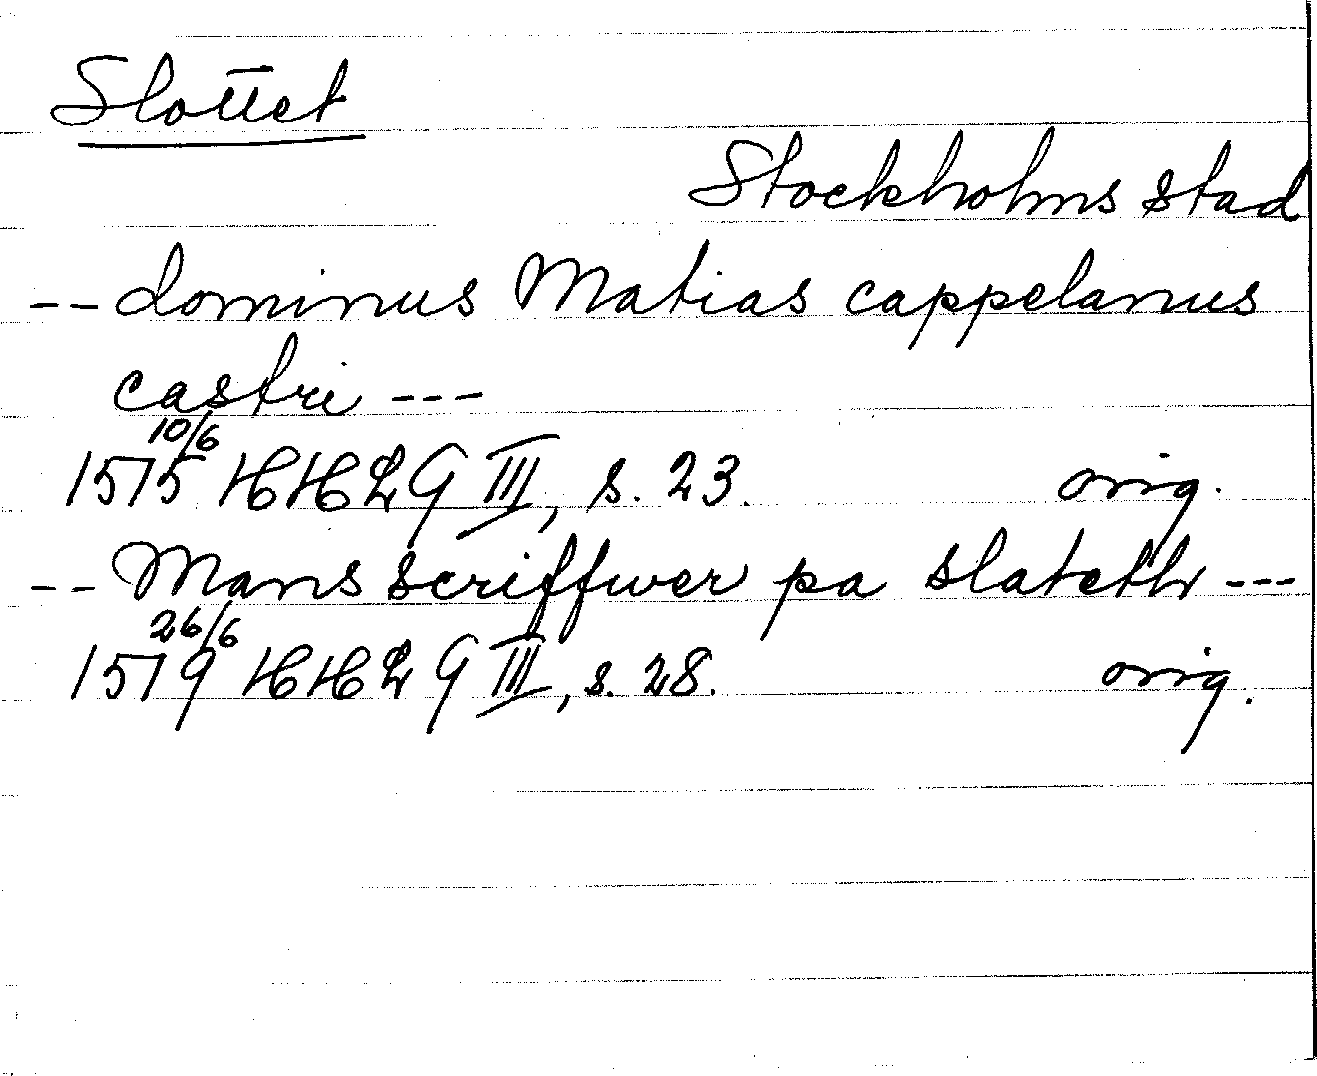 Slottet
Stockholms stad
-- dominus Matias cappelanus
castri ---
10/6
1515 HHLG III, s. 23. orig.
-- Mans scriffwer pa slateth ---
26/6
1519 HHLG III, s. 28. orig.